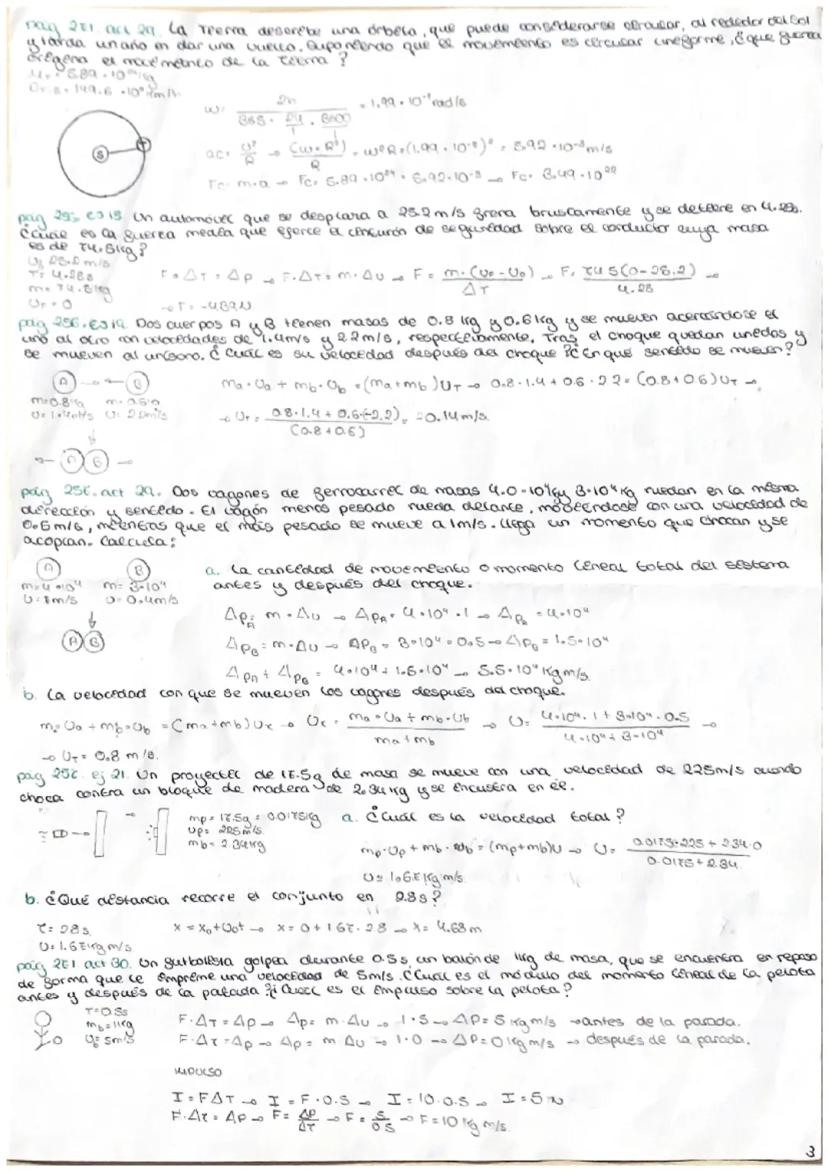 pag 271. act 29. La Tierra describe una órbita, que puede considerarse circular, al rededor del Sol
y tarda un año en dar una vuelta. Suponiendo que el movimiento es circular uniforme, ¿que fuerza
origina el movimiento de la Tierra?
w = 2π / 365 · 24 · 3600 = 1.99 · 10⁻⁷ rad/s
ac = v²/R → (w·R)²/R = w²R = (1.99 · 10⁻⁷)² = 5.92 · 10⁻³ m/s
Fc = m·a → Fc = 5.89 · 10²⁴ · 5.92·10⁻³ → Fc = 3.49 · 10²²
pag 255. ej 15. Un automóvil que se desplaza a 25.2 m/s frena bruscamente y se detiene en 4.28s.
¿Cuál es la fuerza media que ejerce el cinturón de seguridad sobre el conductor cuya masa
es de 74.5kg?
T = 4.28s
m = 74.5kg
F · ΔT = Δp → F · ΔT = m · Δv → F = m · (vf - v0) / ΔT → F = 74.5(0-28.2) / 4.28 →
→ F = -439N
pag 256. ej 19. Dos cuerpos A y B tienen masas de 0.8 kg y 0.6 kg y se mueven acercándose el
uno al otro con velocidades de 1.4m/s y 2.2m/s, respectivamente. Tras el choque quedan unidos y
se mueven al unísono. ¿Cuál es su velocidad después del choque? ¿En qué sentido se mueven?
A → ← B
m=0.8kg m=0.6kg
ma · va + mb · vb = (ma+mb)vT → 0.8 · 1.4 + 0.6 · 2.2 = (0.8+0.6)vT →
→ vT = 0.8 · 1.4 + 0.6·(-2.2) / (0.8+0.6) = -0.14 m/s
A B
pág 256. act 29. Dos vagones de ferrocarril de masas 4.0 · 10⁴kg y 3·10⁴ kg ruedan en la misma
dirección y sentido. El vagón menos pesado rueda delante, moviéndose con una velocidad de
0.5 m/s, mientras que el más pesado se mueve a 1m/s. Llega un momento que chocan y se
acoplan. Calcula:
A B
m=4·10⁴ m=3·10⁴
v=1m/s v=0.4m/s
A B
a. La cantidad de movimiento o momento lineal total del sistema
antes y después del choque.
ΔpA = m · Δv → ΔpA = 4·10⁴ · 1 → ΔpA = 4·10⁴
ΔpB = m · Δv → ΔpB = 3·10⁴ · 0.5 → ΔpB = 1.5·10⁴
ΔpA + ΔpB = 4·10⁴ + 1.5·10⁴ → 5.5·10⁴ kg m/s
b. La velocidad con que se mueven los vagones después del choque.
ma · va + mb · vb = (ma+mb)vx → vx = ma · va + mb · vb / ma+mb → v = 4·10⁴ · 1 + 3·10⁴ · 0.5 / 4·10⁴ + 3·10⁴ →
→ vT = 0.8 m/s.
pág 256. ej 21. Un proyectil de 17.5g de masa se mueve con una velocidad de 225m/s cuando
choca contra un bloque de madera de 2.34 kg y se incustra en él.
mp = 17.5g = 0.0175kg
vp = 225m/s
mb = 2.34kg
a. ¿Cuál es la velocidad total?
mp · vp + mb · vb = (mp+mb)v → v = 0.0175·225 + 2.34·0 / 0.0175+2.34
v = 1.67 kg m/s.
b. ¿Qué distancia recorre el conjunto en 2.8s?
T = 2.8s
v = 1.67 kg m/s
x = x0+v0t → x = 0 + 1.67 · 2.8 → x = 4.68 m
pág 271 act 30. Un futbolista golpea durante 0.5s, un balón de 1kg de masa, que se encuentra en reposo
de forma que le imprime una velocidad de 5m/s. ¿Cuál es el módulo del momento lineal de la pelota
antes y después de la patada? ¿Cuál es el impulso sobre la pelota?
T=0.5s
mb = 1kg
vb = 5m/s
F · ΔT = Δp → Δp = m · Δv → 1 · 5 → Δp = 5 kg m/s → antes de la parada.
F · ΔT = Δp → Δp = m Δv → 1 · 0 → Δp = 0 kg m/s → después de la parada.
IMPULSO
I = FΔT → I = F · 0.5 → I = 10 · 0.5 → I = 5 N
F · ΔT = Δp → F = Δp/ΔT → F = 5/0.5 → F = 10 kg m/s.
3